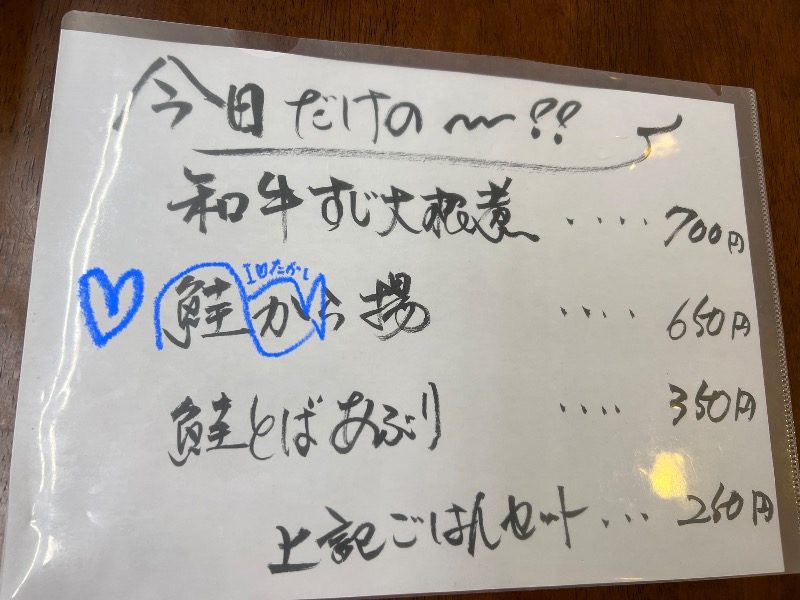 今日だけの〜!!
和牛すじ大根煮 ････ 700円
I♡たかし
鮭から揚 ････ 650円
鮭とばあぶり ････ 350円
上記ごはんセット ･･･ 250円